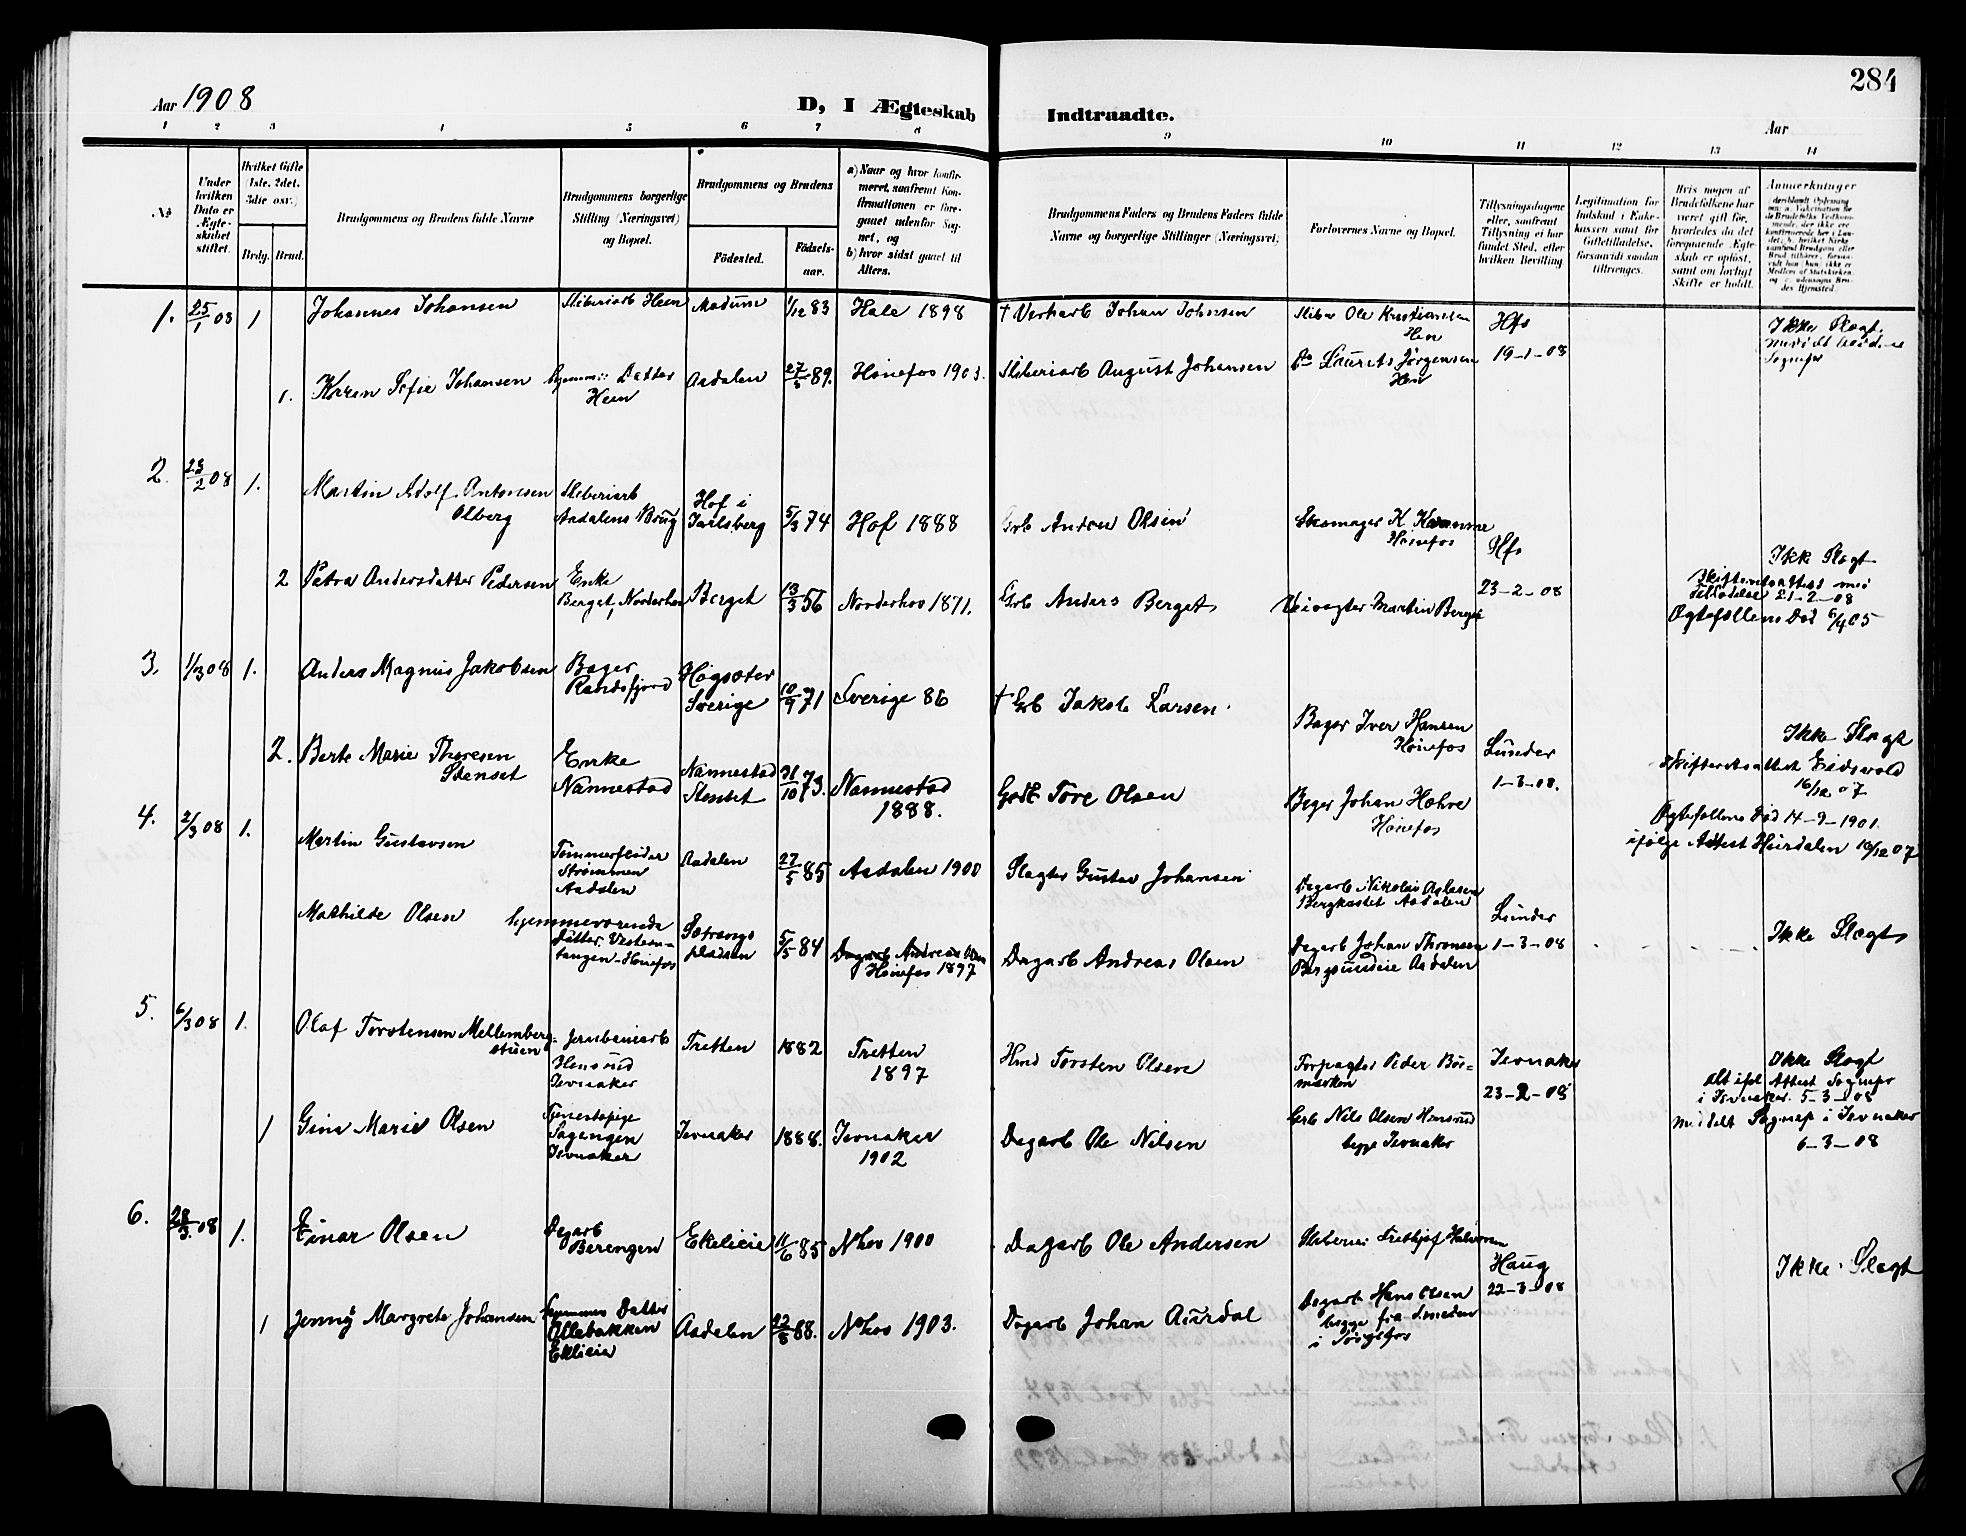 284
Aar 1908
D, I Ægteskab Indtraadte.
Aar
1 2 3 4 5 6 7 8 9 10 11 12 13 14
No
Under hvilken Dato er Ægteskabet stiftet.
Hvilket Gifte (1ste, 2det, 3die osv.)
Brdg. Brud.
Brudgommens og Brudens fulde Navne
Brudgommens borgerlige Stilling (Næringsvei) og Bopæl.
Brudgommens og Brudens
Födested.
Födselsaar.
a) Naar og hvor konfirmeret, saafremt Konfirmationen er foregaaet udenfor Sognet, og
b) hvor sidst gaaet til Alters.
Brudgommens Faders og Brudens Faders fulde Navne og borgerlige Stillinger (Næringsvei)
Forlovernes Navne og Bopæl.
Tillysningsdagene eller, saafremt Tillysning ei har fundet Sted, efter hvilken Bevilling.
Legitimation for Indskud i Enkekassen samt for Giftetilladelse, forsaavidt saadan tiltrænges.
Hvis nogen af Brudefolkene har været gift før, hvorledes da det foregaaende Ægteskab er opløst, samt om lovligt Skifte er holdt.
Anmærkninger
1. 25/1 08 1 Johannes Johansen Sliberiarb Heen Modum 1/12 83 Hole 1898 † Verkarb Johan Johnsen Sliber Ole Kristiansen Hen Hfs 19-1-08 Ikke Slægt.
1. Karen Sofie Johansen Hjemmev: Datter Heen Aadalen 89. Hönefos 1903. Sliberiarb August Johansen Do Laurits Jørgensen Hen
2. 23/2 08 1. Martin Adolf Antonsen Olberg Sliberiarb Aadalens Brug Hof i Jarlsberg 5/3 74 Hof 1888 Grb Olsen Skomager K Hönefos Hfs 23-2-08 Ikke Slægt
2 Petra Andersdatter Pedersen Enke Berget, Norderhov Berget 13/3 56 Norderhov 1871. Grb Anders Berget Veivogter Martin Berget 21-2-08 Ægtefællens Död 6/4 05
3. 1/3 08 1. Anders Magnus Jakobsen Bager Randsfjord Högsæter Sverige 10/9 71 Sverige 86 † Grb Jakob Larsen. Bager Iver Hansen Hönefos Lunder 1-3-08. Ikke Slægt
2. Berte Marie Thoresen Stenset Enke Nannestad Nannestad Stenset 31/10 73. Nannestad 1888. Tore Olsen Bager Johan Hønefos Skifteretsattest Eidsvold 16/12 07 Ægtefællens Död 14-9-1901. ifølge Attest Hurdalen 16/12 07
4. 2/3 08 1. Martin Gustavsen Tømmerfløder Strømmen Aadalen Aadalen 27/5 85 Aadalen 1900 Slagter Gustav Johansen Dagarb Nikolai Bergkastet Aadalen Lunder 1-3-08 Ikke Slægt
Mathilde Olsen hjemmeværende Datter, Vestern-tangen-Hönefos Sætrangspladsen 5/5 84 Dagarb Andreas Olsen Hönefos 1897 Dagarb Andreas Olsen Dagarb Johan Thronsen Bergsundeie Aadalen
5. 6/3 08 1. Olaf Torstensen Mellembergstuen Jernbanearb Hensrud Jevnaker Tretten 1882 Tretten 1897 Hmd Torsten Olsen Forpagter Peder Jevnaker 23-2-08 Ikke Slægt alt iføl. Attest Sognepr i Jevnaker. 5-3-08
1 Gina Marie Olsen Tjenestepige Sagengen Jevnaker Jevnaker 1888. Jevnaker 1902 Dagarb Ole Nilsen Grb Nils Olsen Hensrud begge Jevnaker meddelt Sognep i Jevnaker 6-3-08
6. 28/3. 08 1. Einar Olsen Dagarb Berengen Ekelieie 11/6 85 N hov 1900 Dagarb Ole Andersen Haug 22-3-08 Ikke Slægt
1 Jenny Margrete Johansen hjemmev Datter Ollebakken Eklieie Aadalen 88. N hov 1903. Dagarb Johan Aurdal Dagarb Hans Olsen begge fra Smeden